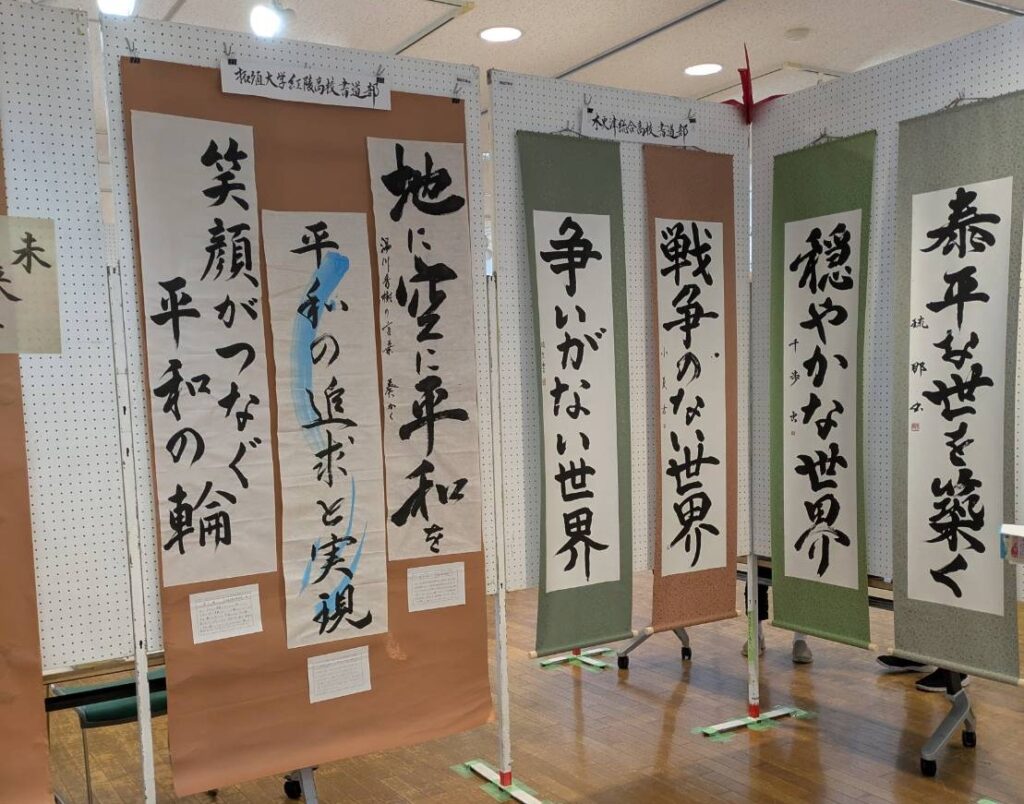 未来
拓殖大学紅陵高校書道部
地に空に平和を
平和の追求と実現
笑顔がつなぐ
平和の輪
木更津総合高校書道部
泰平な世を築く
穏やかな世界
戦争のない世界
争いがない世界